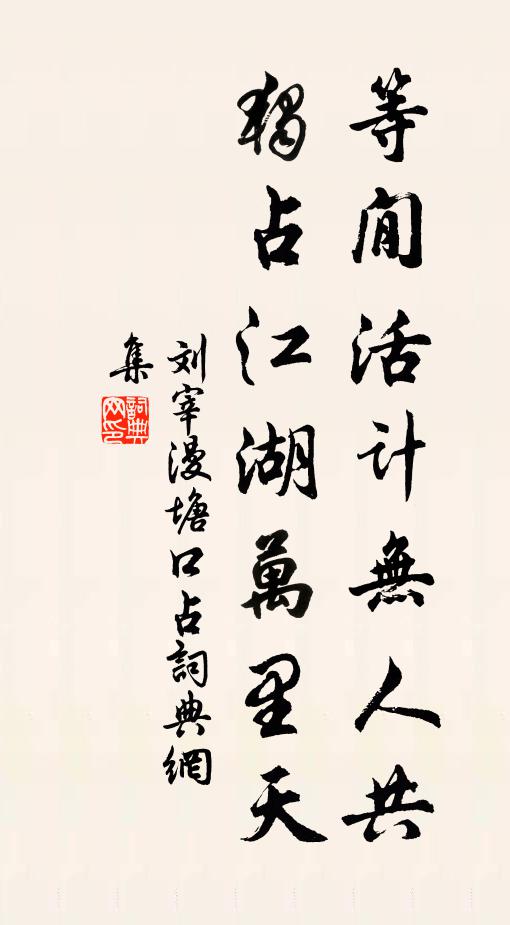 等閒活計無人共
獨占江湖萬里天
刘宰漫塘口占詞典網
集
詞典
网印